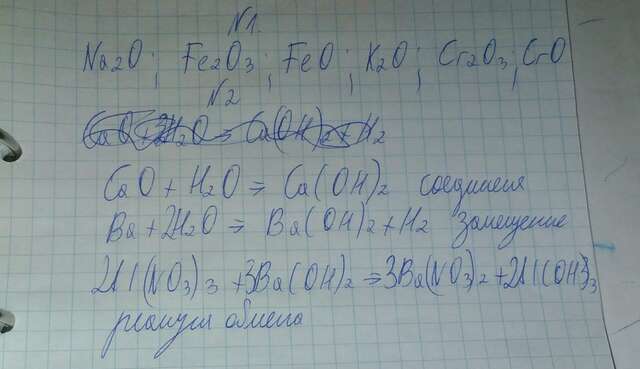 N1.
Na2O; Fe2O3; FeO; K2O; Cr2O3; CrO
N2
CaO + H2O = Ca(OH)2 + H2
CaO + H2O => Ca(OH)2 соединеня
Ba + 2H2O => Ba(OH)2 + H2 Замещение
2Al(NO3)3 + 3Ba(OH)2 => 3Ba(NO3)2 + 2Al(OH)3
реакция обмена